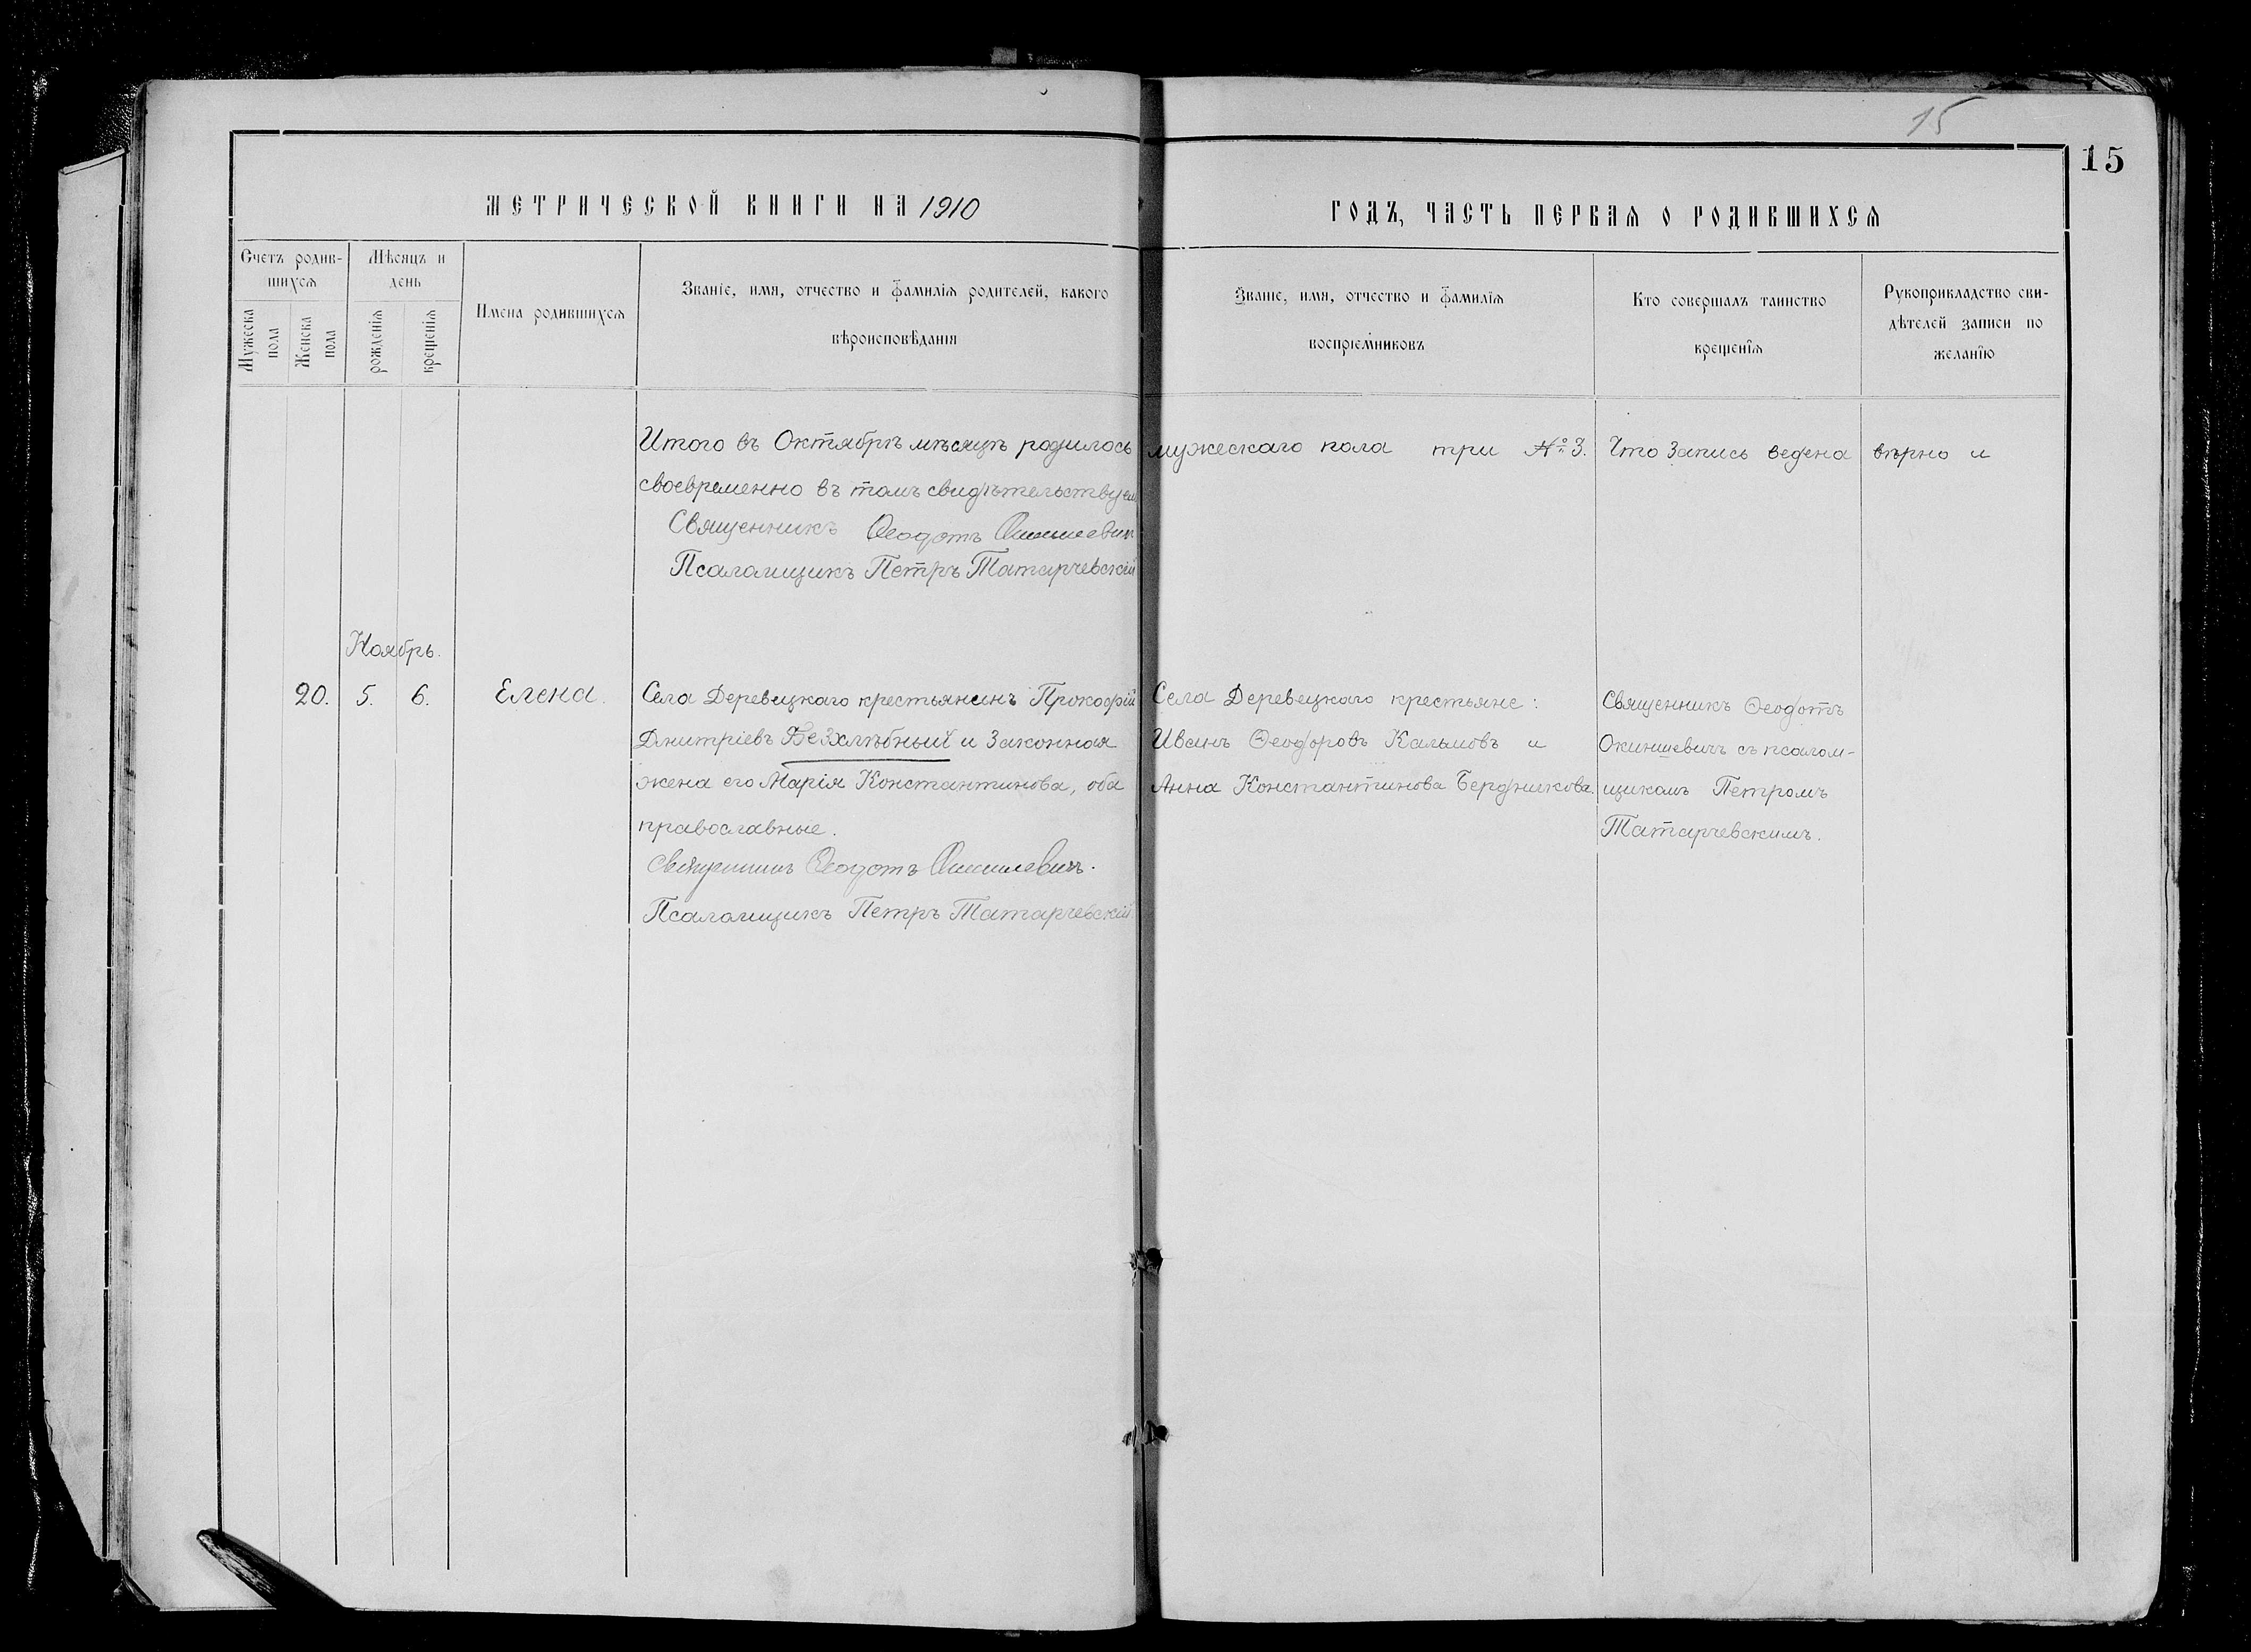 15
15
МЕТРИЧЕСКОЙ КНИГИ НА 1910
ГОДЪ, ЧАСТЬ ПЕРВАЯ О РОДИВШИХСЯ
Счетъ родив-
шихся
Мужеска
пола
Женска
пола
Мѣсяцъ и
день
рожденія
крещенія
Имена родившихся
Званіе, имя, отчество и фамилія родителей, какого
вѣроисповѣданія
Званіе, имя, отчество и фамилія
воспріемниковъ
Кто совершалъ таинство
крещенія
Рукоприкладство сви-
дѣтелей записи по
желанію
Итого въ Октябрѣ мѣсяцѣ родилось мужескаго пола три № 3. Что запись ведена вѣрно и
своевременно въ томъ свидѣтельствуем
Священникъ Ѳеодотъ Окиншевич
Псаломщикъ Петръ Татарчевскій
Ноябрь.
20. 5. 6. Елена.
Села Деревецкаго крестьянинъ Прокофій
Дмитріевъ Безхлѣбный и законная
жена его Марія Константинова, оба
православные.
Священникъ Ѳеодотъ Окиншевичъ.
Псаломщикъ Петръ Татарчевскій.
Села Деревецкаго крестьяне:
Иванъ Ѳеодоровъ Калмовъ и
Анна Константинова Бердникова.
Священникъ Ѳеодотъ
Окиншевичъ съ псалом-
щикомъ Петромъ
Татарчевскимъ.